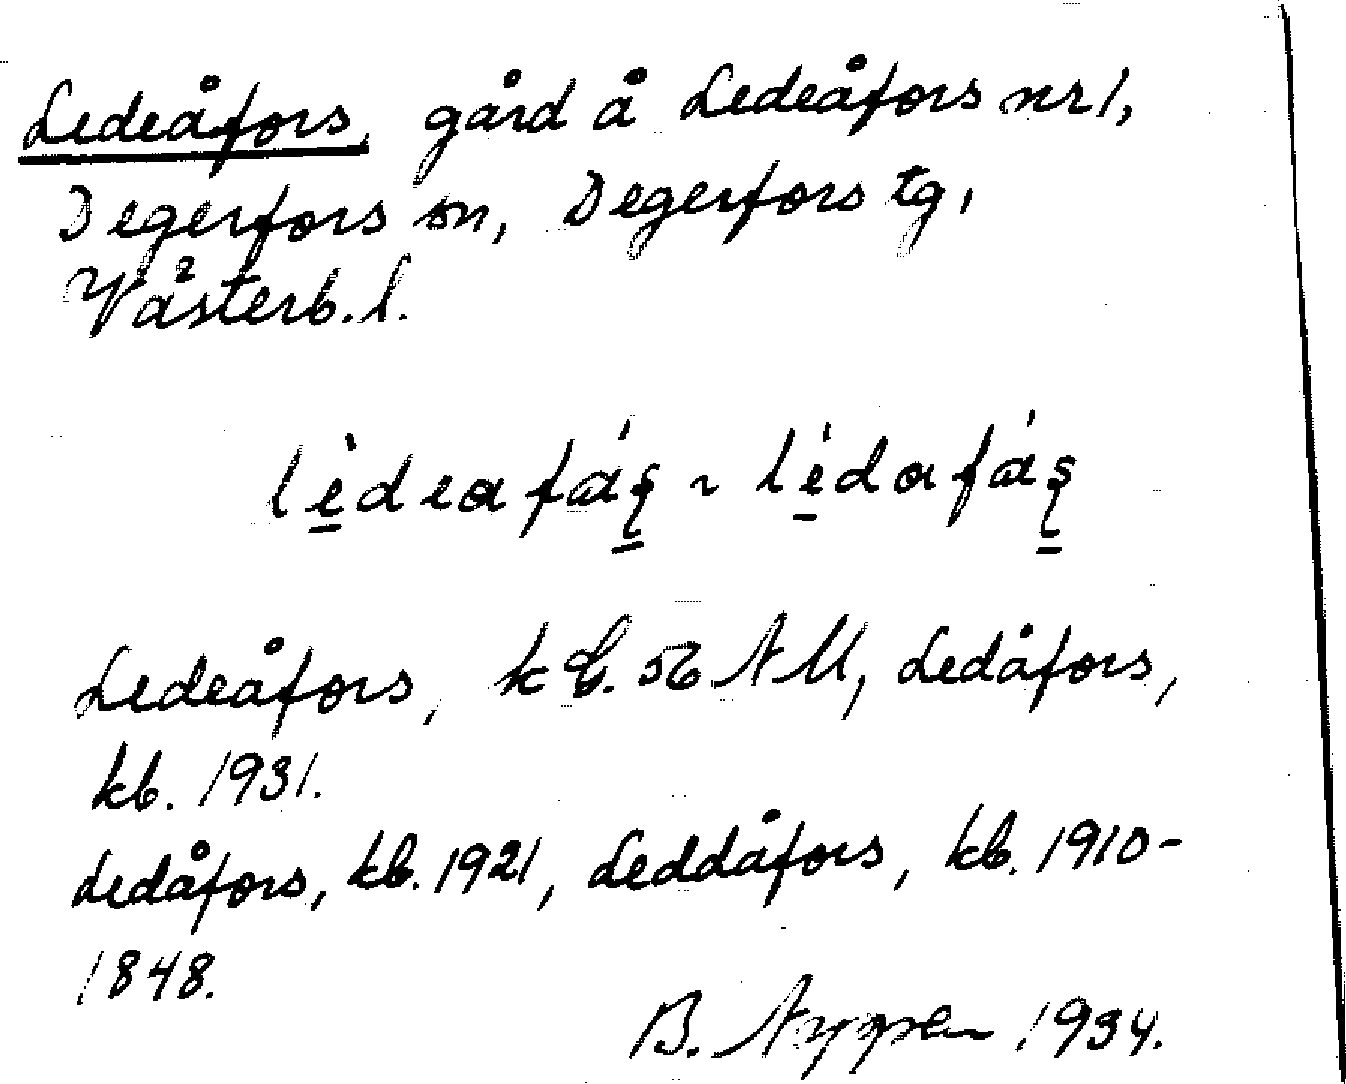 Ledeåfors, gård å Ledeåfors nr 1,
Degerfors sn, Degerfors tg,
Västerb. l.
lèdeafás ~ lédafás
Ledeåfors, kb.
Ledåfors,
kb. 1931.
Ledåfors, kb. 1921, Leddåfors, kb. 1910-
1848.
B. 1934.